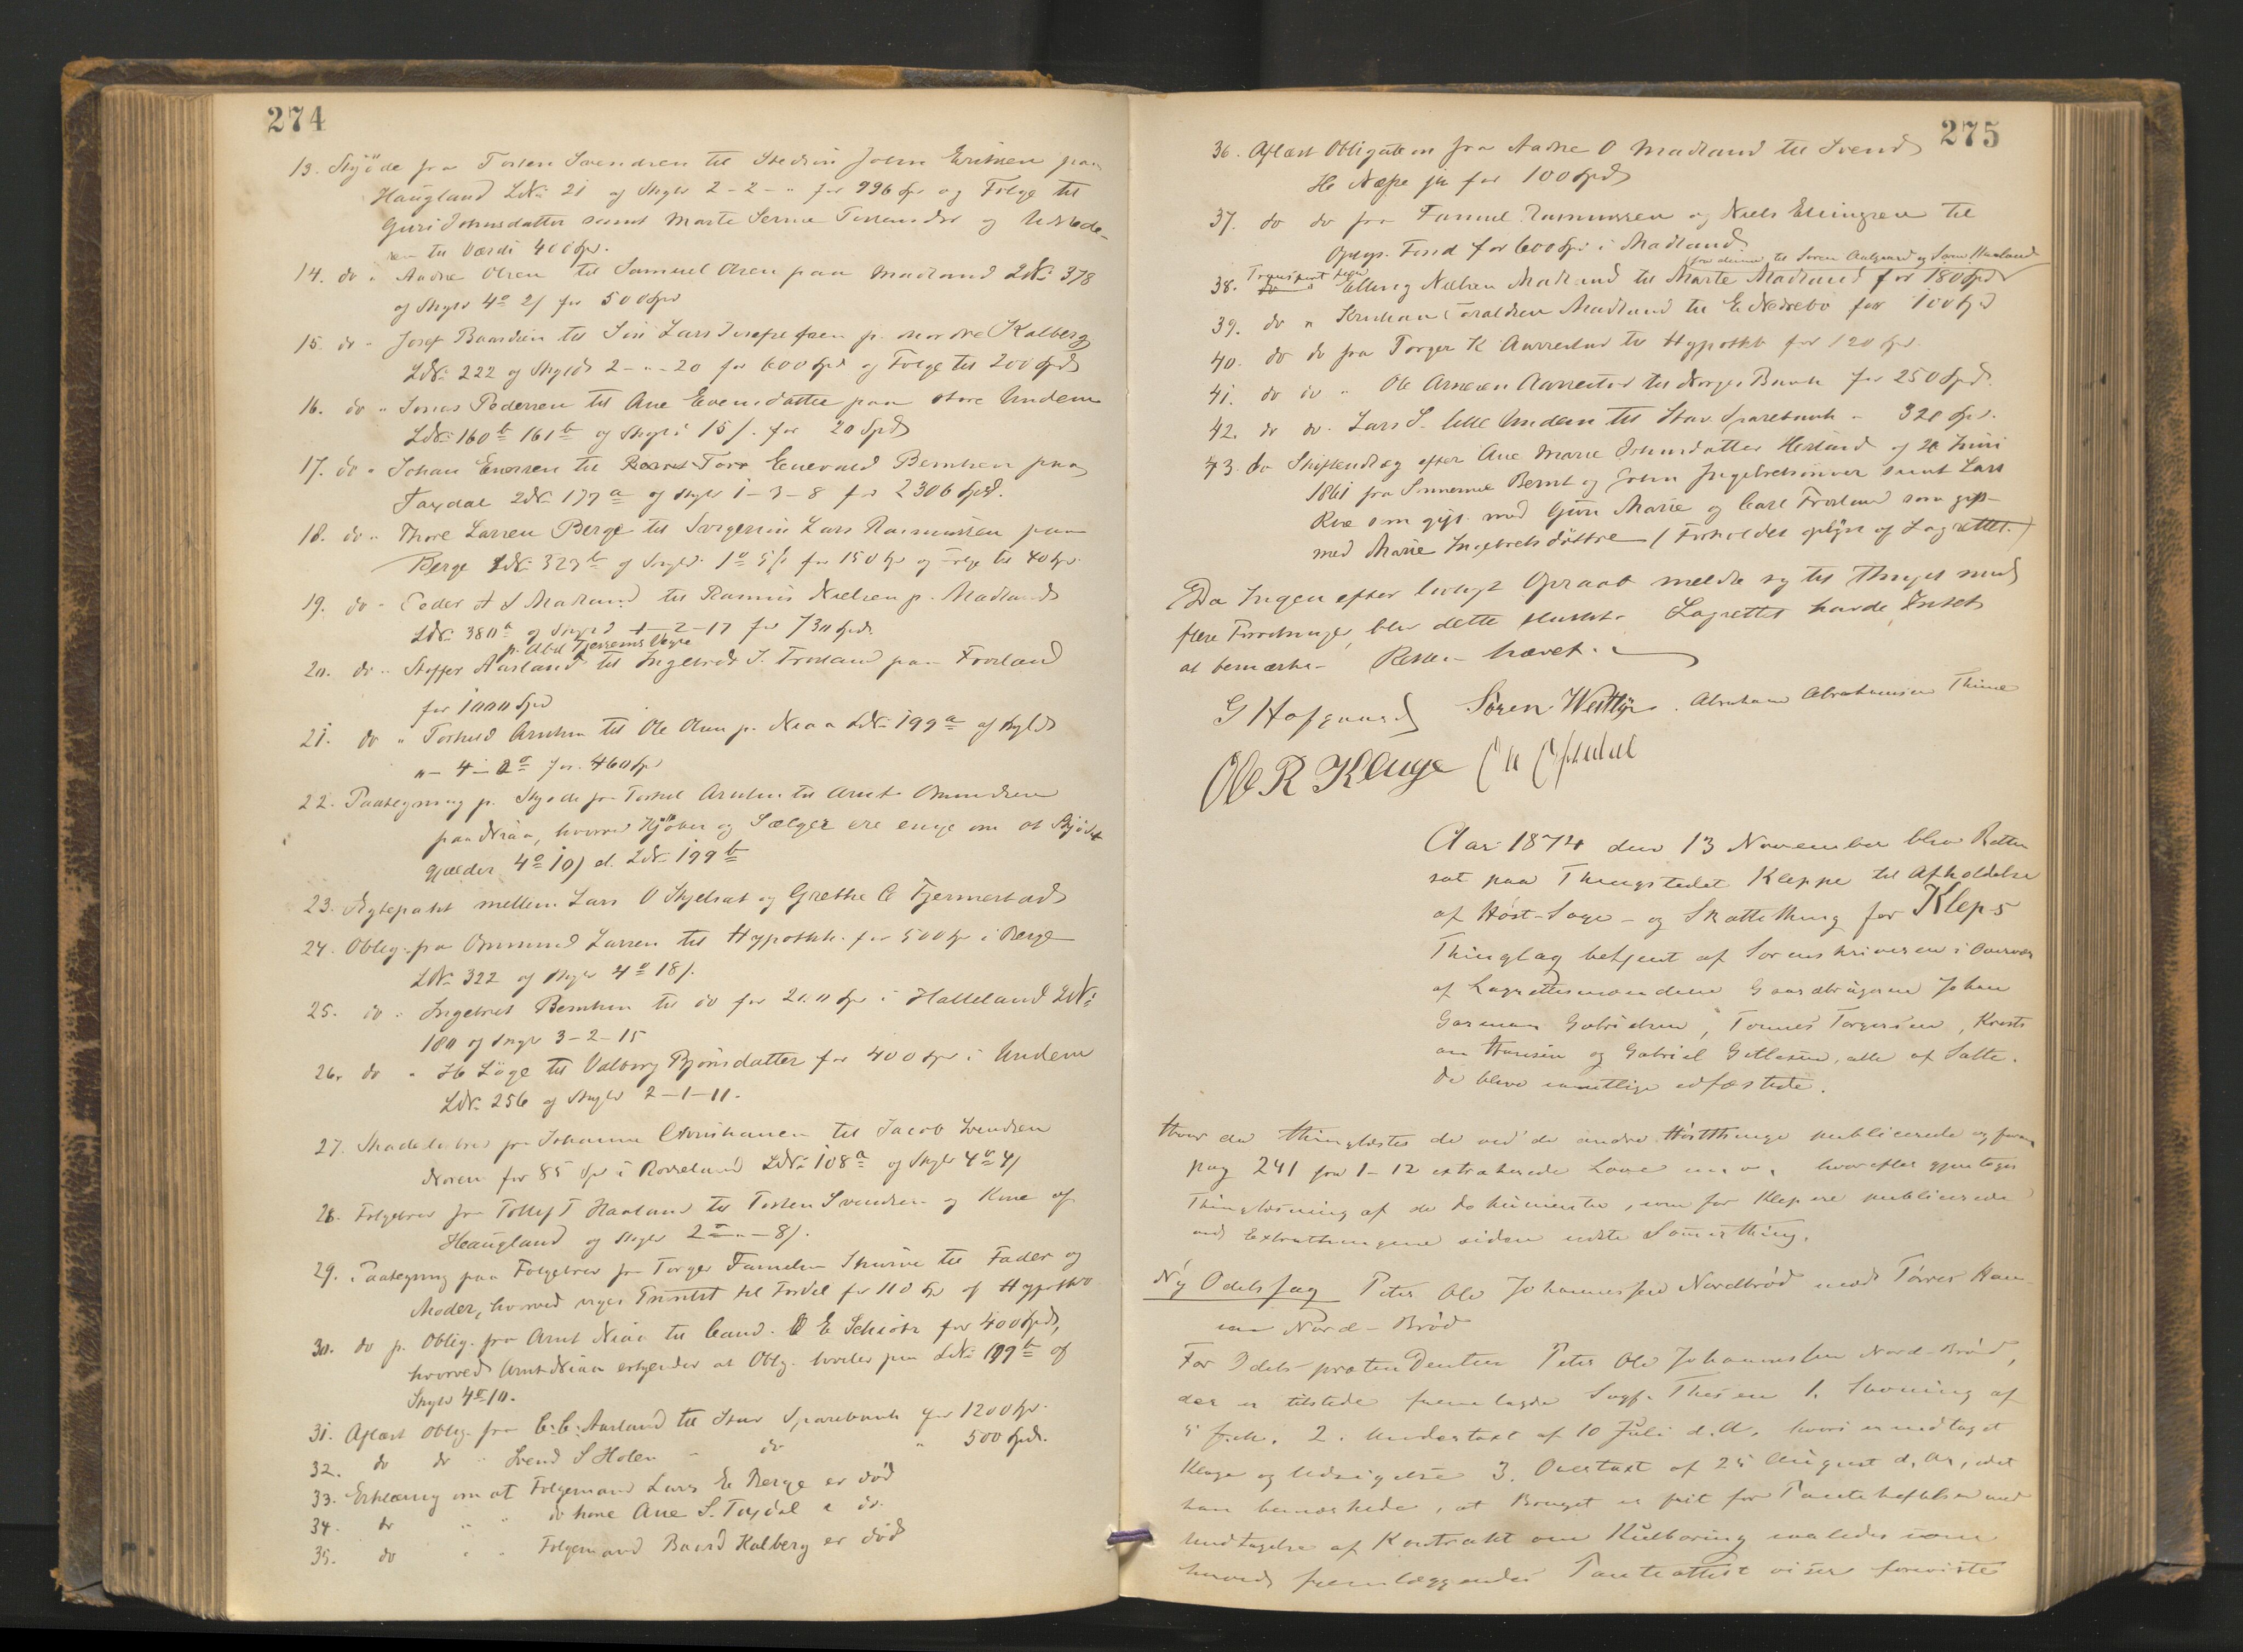 274
13. Skjöde fra Torsten Svendsen til Stedsön John Eriksen paa
Haugland LNo 21 og Skyld 2-2-" for 996 Spd og Folge til
Guri Johnsdatter samt Marte Serine og
til Værdi 400 Spd.
14. do " Aadne Olsen til Samuel Olsen paa Madland LNo 378
og Skyld 4 2/ for 500 Spd
15. do " Josef Baardsen til Sön Lars Josefsen p. nordre Kalberg
LNo 222 og Skyld 2-"-20 for 600 Spd og Folge til 200 Spd
16. do " Jonas Pedersen til Ane Evensdatter paa store Undem
LNo 160b 161b og Skyld 15/. for 20 Spd
17. do " Johan Enersen til Tore Enevald Berntsen paa
Taxdal LNo 177a og Skyld 1-3-8 for 2306 Spd.
18. do " Thore Larsen Berge til Svigersön Lars Rasmussen paa
Berge LNo 323b og Skyld 1 5/ for 150 Spd og Folge til 40 Spd.
19. do " Peder A S Madland til Rasmus Nielsen p. Madland
LNo 380a og Skyld 1-2-17 for 730 Spd.
p. Abel Tjersems Vegne
20. do " Stoffer Aarland til Ingebret J. Frosland paa Frosland
for 1000 Spd
21. do " Torkild Arntsen til Ole Olsen p. Niaa LNo 199a af Skyld
"-4-2 for 460 Spd
22. Paategning p. Skjöde fra Torkel Arntsen til Arnt Omundsen
paa Niaa, hvorved Kjöber og Sælger ere enige om at Skjödet
gjælder 4 10/ af LNo 199b
23. Ægtepakt mellem Lars O Skjelset og Grethe O Tjermestad
24. Oblig. fra Ommund Larsen til Hypothkb. for 500 Spd i Berge
LNo 322 og Skyld 4 18/.
25. do " Ingebret Berntsen til do for 200 Spd i Halleland LNo
180 og Skyld 3-2-15
26. do " H Löge til Valborg Bjönsdatter for 400 Spd i Undem
LNo 256 og Skyld 2-1-11.
27. Skadeslosbrev fra Johanne Christiansen til Jacob Svendsen
Noren for 85 Spd i Rosseland LNo 108a og Skyld 4 4/
28. Folgebrev fra Tollef T Haaland til Torsten Svendsen og Kone af
Haugland og Skyld 2-"-8/.
29. Paategning paa Folgebrev fra Torger Skurve til Fader og
Moder, hvorved viges Prioritet til Fordel for 110 Spd af Hypothkb.
30. do p. Oblig. fra Arnt Niaa til Cand. E Schiötz for 400 Spd,
hvorved Arnt Niaa erkjender at Oblig. hviler paa LNo 199b af
Skyld 4 10.
31. Aflæst oblig. fra C. C. Aarland til Stav Sparebank for 1200 Spd.
32. do do " Svend S Holen - do " 500 Spd.
33. Erklæring om at Folgemand Lars E Berge er död
34. do " " do kone Ane S. Taxdal " do.
35. do " " Folgemand Baard Kalberg er död
275
36. Aflæst Obligation fra Aadne O Madland til Svend
H Næse jr for 100 Spd
37. do do fra Samuel Rasmussen og Niels Ellingsen til
Oplysn. Fond for 600 Spd i Madland.
fra denne til Soren Aalgaard og Sam Haaland
38. Transport Elling Nielsen Madland til Marte Madland for 180 Spd
39. do " Kristian Toraldsen Madland til E Nedrebö for 100 Spd
40. do do fra Torger K Aarrestad til Hypothkb for 120 Spd.
41. do do " Ole Arnesen Aarrestad til Norges Bank for 250 Spd.
42. do do. Lars S. lille Undem til Stav. Sparebank - 320 Spd.
43. do Skifteudlæg efter Ane Marie Johnsdatter Hesland af 20 Juni
1861 fra Sönnerne Bernt og John Ingebretsönner samt Lars
Roe som gift med Guri Marie og Carl Frosland som gift
med Marie Ingebretsdöttre (Forholdet oplyst af Lagrettet.)
Da Ingen efter lovligt Opraab meldte sig til Thinget med
flere Forretninger, blev dette sluttet. Lagrettet havde Intet
at bemærke. Retten hævet.
G Hofgaard Sören Westlÿe. Abraham Abrahamsen Thime
Ole R Kluge
Aar 1874 den 13 November blev Retten
sat paa Thingstedet Kleppe til Afholdelse
af Höst-Sage- og Skattething for Kleps
Thinglag betjent af Sorenskriveren i Overvær
af Lagrettesmændene Gaardbrugerne Johan
Garman Gabrielsen, Tonnes Torgersen, Kristi
an Hansen og Gabriel Gitlesen, alle af Salte.
De bleve samtlige edfæstede.
Hvor da thinglæstes de ved de andre Höstthinge publicerede og foran
pag 241 fra 1-12 extraherede Love m. v., hvorefter gjentoges
Thinglæsning af de Dokumenter, som for Klep ere publicerede
ved Extrathingene siden sidste Sommerthing.
Ny Odelssag Peter Ole Johannessen Nordbröd mod Törres Han-
sen Nord-Bröd
For Odelsprætendenten Peter Ole Johannessen Nord-Bröd,
der er tilstede fremlagde Sagf. Thesen 1. Stevning af
5 f.M. 2. Undertaxt af 10 Juli d.A. hvori er indtaget
Klage og Udvigelse 3. Overtaxt af 25 August d. Ar, idet
han bemærkede, at Bruget er frit for Pantehæftelser med
Undtagelse af Kontrakt om Kulboring saaledes som
herved fremlæggende Panteattest viser foreviste